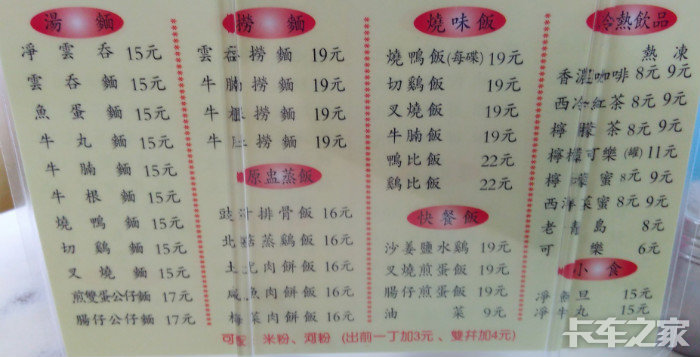 湯麵
淨雲吞 15元
雲吞麵 15元
魚蛋麵 15元
牛丸麵 15元
牛腩麵 15元
牛根麵 15元
燒鴨麵 15元
切鷄麵 15元
叉燒麵 15元
煎雙蛋公仔麵 17元
腸仔公仔麵 17元
撈麵
雲吞撈麵 19元
牛腩撈麵 19元
牛 撈麵 19元
牛 撈麵 19元
原盅蒸飯
豉汁排骨飯 16元
北菇蒸鷄飯 16元
土 肉餅飯 16元
咸魚肉餅飯 16元
梅菜肉餅飯 16元
燒味飯
燒鴨飯(每碟) 19元
切鷄飯 19元
叉燒飯 19元
牛腩飯 19元
鴨比飯 22元
鷄比飯 22元
快餐飯
沙姜鹽水鷄 19元
叉燒煎蛋飯 19元
腸仔煎蛋飯 19元
油菜 9元
冷熱飲品
熱 凍
香濃咖啡 8元 9元
西冷紅茶 8元 9元
檸檬茶 8元 9元
檸檬可樂(罐) 11元
檸檬蜜 8元 9元
西洋菜蜜 8元 9元
老青島 8元
可樂 6元
小食
淨魚旦 15元
淨牛丸 15元
可 : 米粉、河粉 (出前一丁加3元、雙弁加4元)
卡车之家